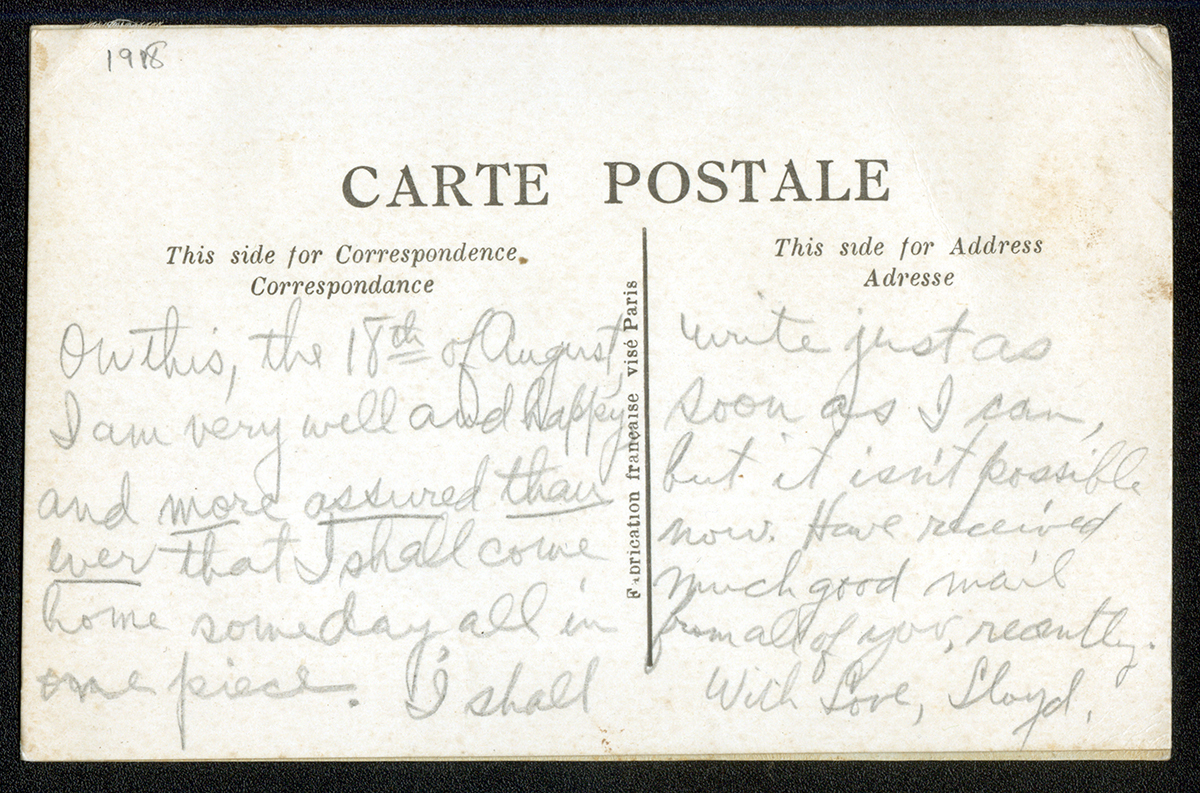 1918
CARTE POSTALE
This side for Correspondence.
Correspondance
This side for Address
Adresse
Fabrication française visé Paris
On this, the 18th of August,
I am very well and happy
and more assured than
ever that I shall come
home someday, all in
one piece. I shall
write just as
soon as I can,
but it isn't possible
now. Have received
much good mail
from all of you, recently.
With Love, Lloyd.